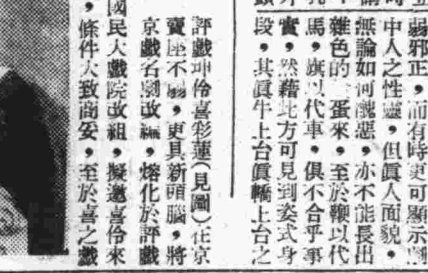 弱邪正，而有時更可顯示劇
中人之性靈，但眞人面貌，
無論如何醜惡，亦不能長出
雜色的　蛋來，至於鞭以代
馬，旗以代車，俱不合乎事
實，然藉此方可見到姿式身
段，其眞牛上台眞轎上台之
評戲坤伶喜彩蓮（見圖）在京
賣座不弱，更具新頭腦，將
京戲名劇改編，熔化於評戲
國民大戲院改組，擬邀喜伶來
，條件大致商妥，至於喜之戲